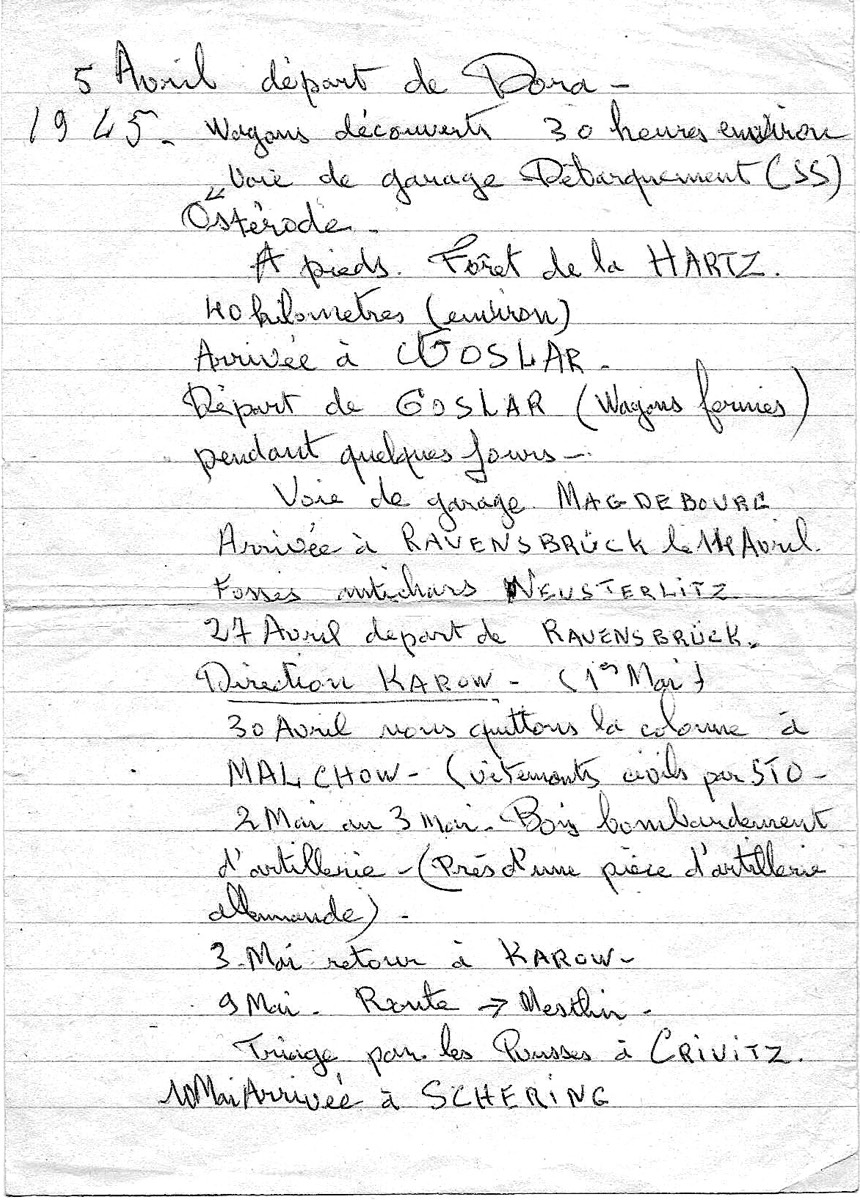 5 Avril départ de Dora -
1945. Wagons découverts 30 heures environ
Voie de garage Débarquement (SS)
Ostérode.
A pieds. Forêt de la HARTZ.
40 kilometres (environ)
Arrivée à GOSLAR.
Départ de GOSLAR (Wagons fermés)
pendant quelques jours -
Voie de garage MAGDEBOURG
Arrivée à RAVENSBRÜCK le 14 Avril.
Fossés antichars NEUSTERLITZ
27 Avril depart de RAVENSBRÜCK.
Direction KAROW - (1er Mai)
30 Avril nous quittons la colonne à
MALCHOW - (vêtements civils par STO -
2 Mai au 3 Mai - Bois bombardement
d'artillerie - (Près d'une pièce d'artillerie
allemande) -
3 Mai retour à KAROW -
9 Mai - Route → Mestlin -
Triage par les Russes à CRIVITZ.
10 Mai Arrivée à SCHERING